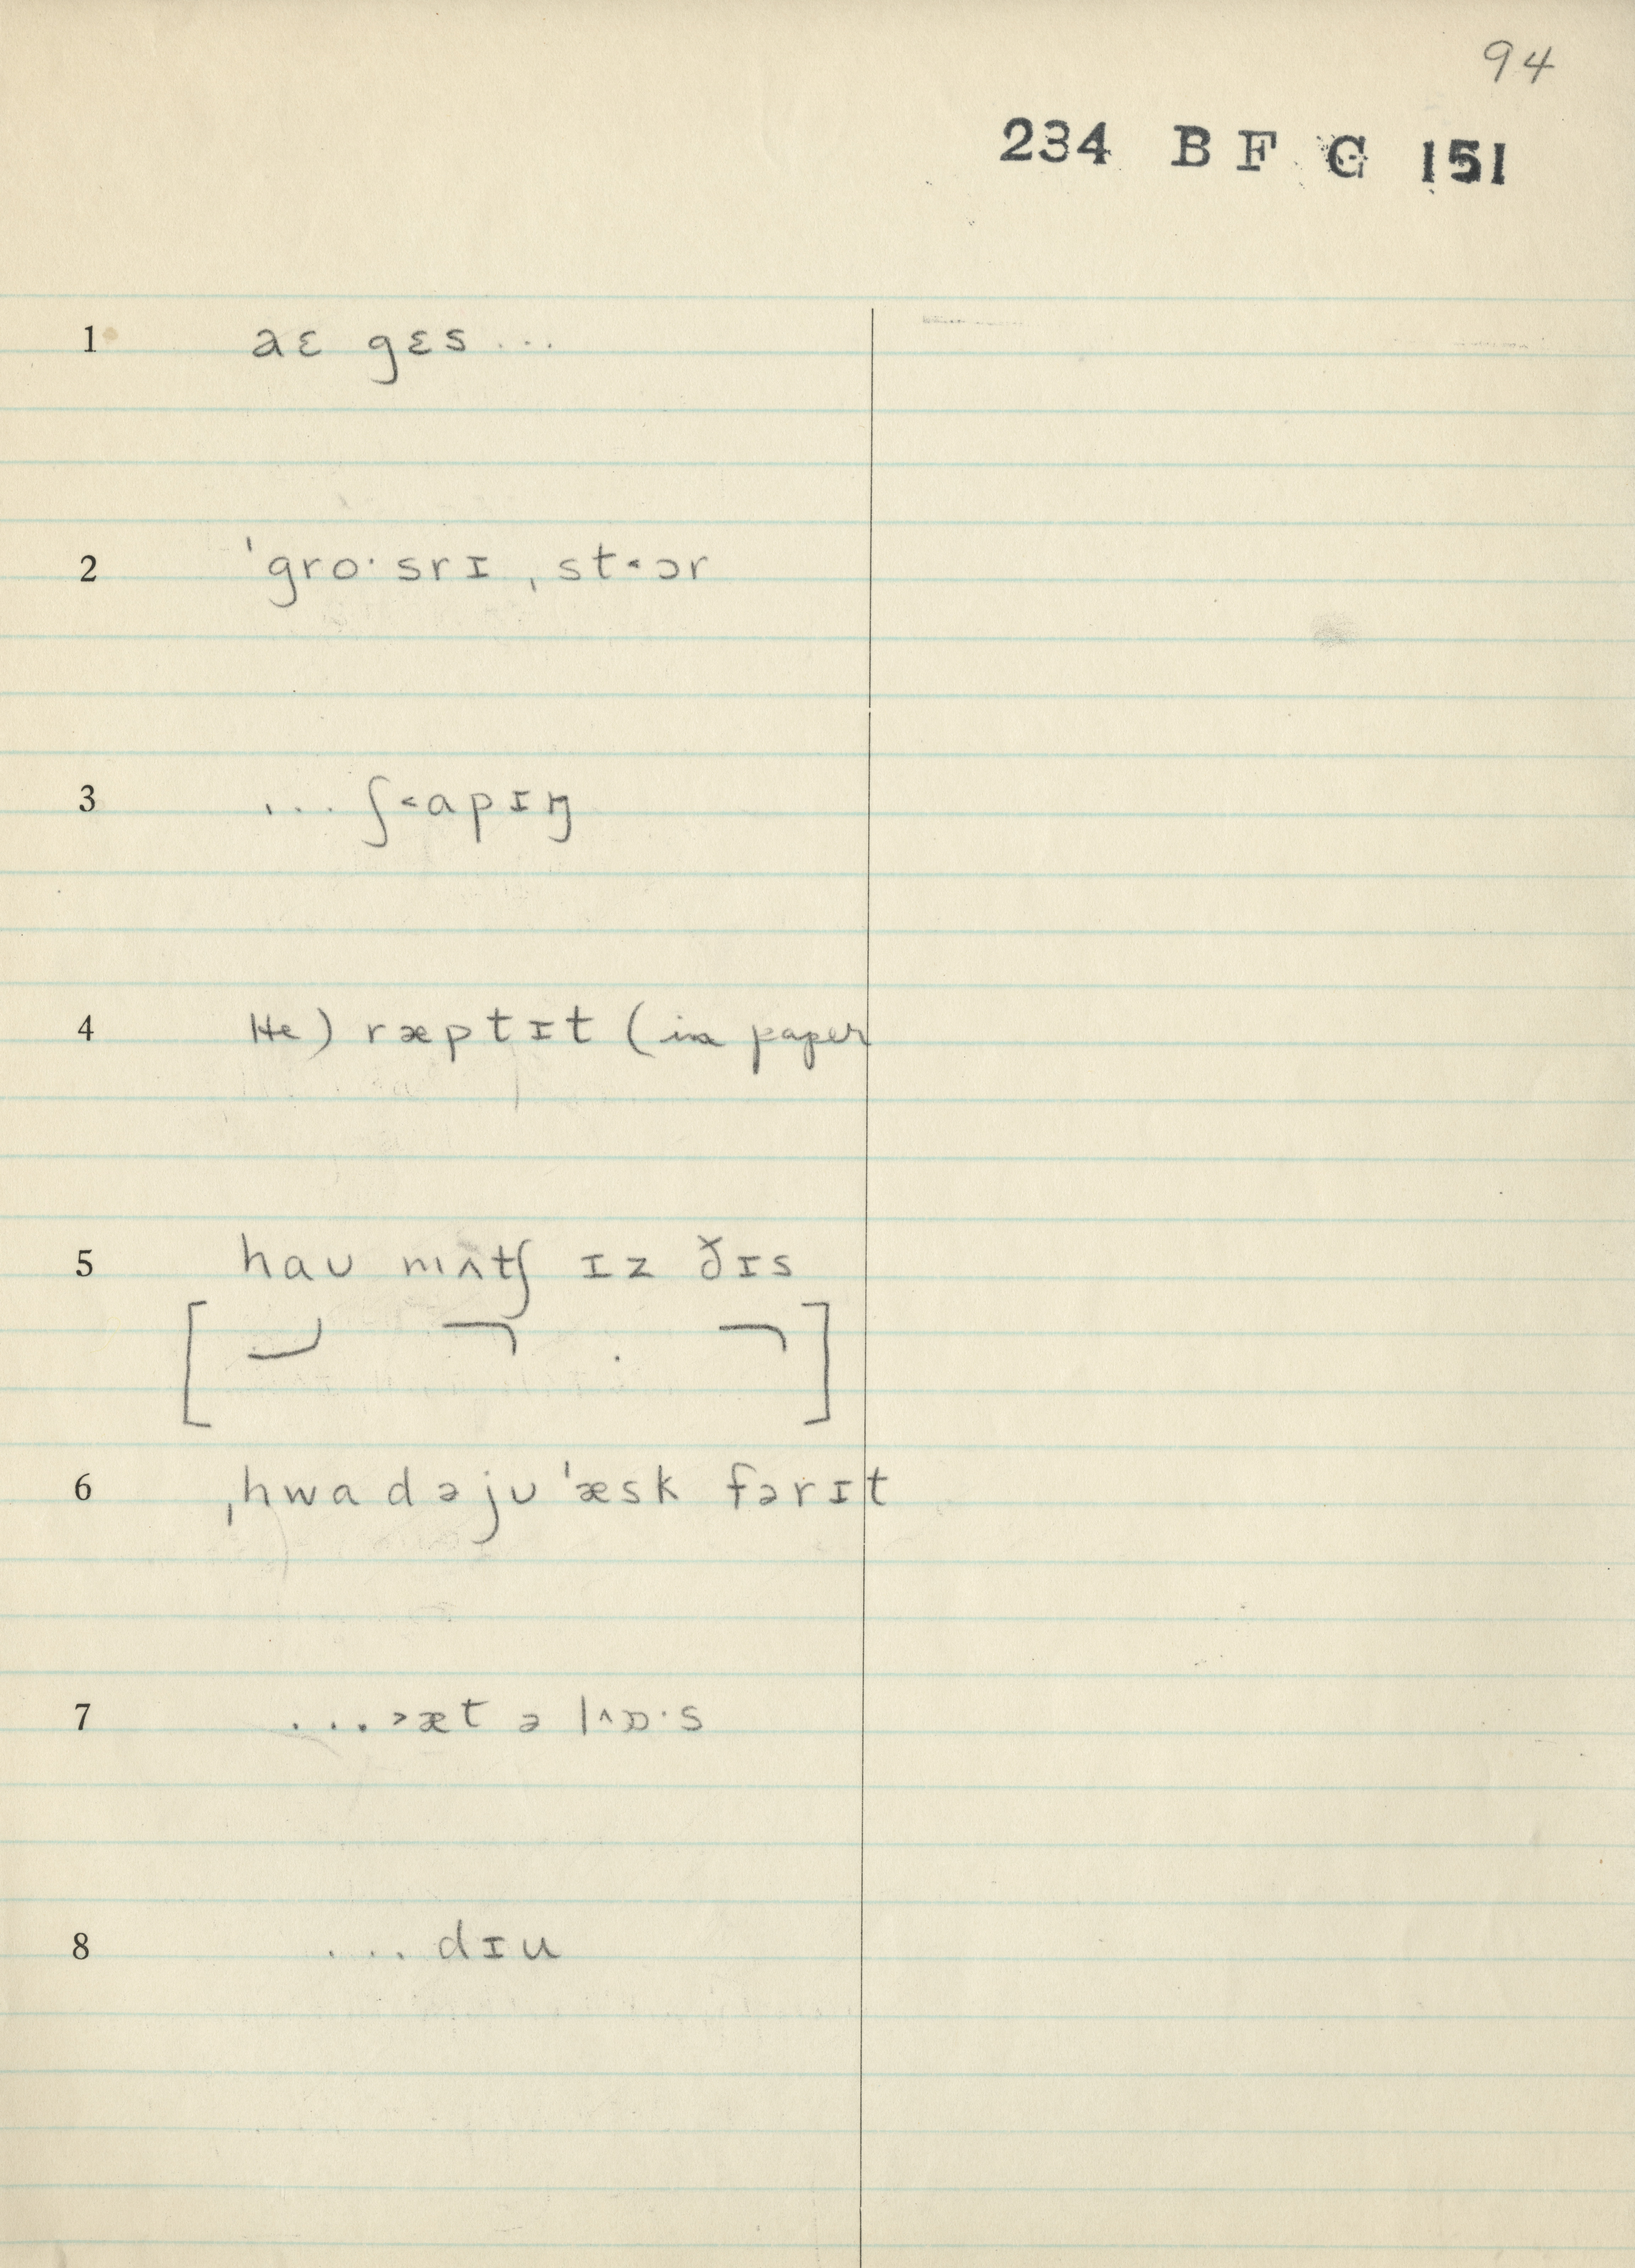 94
234 B F G 151
1 aɛ gɛs...
2 ˈgroˑsrɪ ˌst˂ɔr
3 ... ʃ˂apɪŋ
4 He) ræptɪt (in paper
5 haʊ mʌtʃ ɪz ðɪs
[ ]
6 ˌhwadəjʊˈæsk fərɪt
7 ...˃æt ə l^ɒˑs
8 ... dɪu